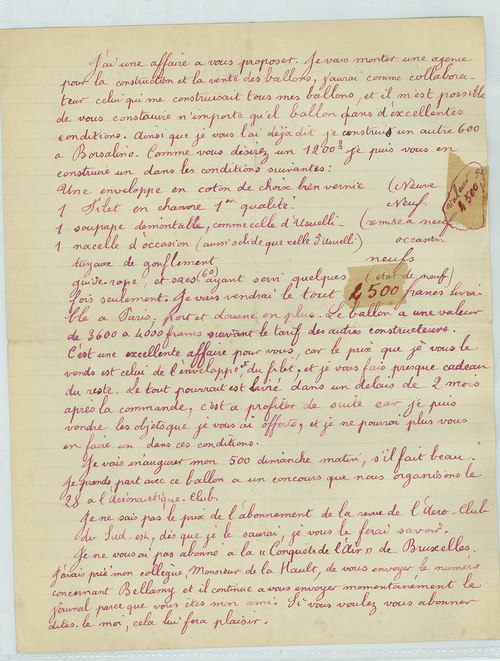 J'ai une affaire a vous proposer. Je vais monter une agence
pour la construction et la vente des ballons, j'aurai comme collabora-
teur celui qui me construisait tous mes ballons, et il m'est possible
de vous construire n'importe qu'el ballon dans d'excellentes
conditions. Ainsi que je vous l'ai déjà dit je construis un autre 600
a Borsalino. Comme vous désirez un 1200 je puis vous en
construire un dans les conditions suivantes:
Une enveloppe en coton de choix bien vernie (Neuve
1 Filet en chanvre 1ère qualité. Neuf.
1 soupape démontable, comme celle d'Usuelli - (remise a neuf
1 nacelle d'occasion (aussi solide que celle d'Usuelli) occasion
tuyaux de gonflement neufs
guide-rope, et sacs (60) ayant servi quelques (etat de neuf)
fois seulement. Je vais vendrai le tout 4500 francs livra-
ble a Paris, port et douane en plus. Le ballon a une valeur
de 3600 a 4000 francs suivant le tarif des autres constructeurs.
C'est une excellente affaire pour vous, car le prix que je vous le
vends est celui de l'enveloppe, du filet, et je vous fais presque cadeau
du reste. Le tout pourrait est livré dans un delais de 2 mois
après la commande, c'est a profiter de suite car je puis
vendre les objets que je vous ai offerts, et je ne pourrai plus vous
en faire un dans ces conditions.
Je vais inaugurer mon 500 dimanche matin, s'il fait beau.
Je prends part avec ce ballon a un concours que nous organisons le
28 a l'aéronautique-Club.
Je ne sais pas le prix de l'abonnement de la revue de l'Aéro-Club
du Sud-est, dès que je le saurai, je vous le ferai savoir.
Je ne vous ai pas abonné a la "Conquête de l'Air" de Bruxelles.
J'avais prié mon collègue, Monsieur de la Hault, de vous envoyer le numéro
concernant Bellamy et il continue a vous envoyer momentairement le
journal parce que vous êtes mon ami. Si vous voulez vous abonner
dites-le moi, cela lui fera plaisir.
Valeur
4500 f